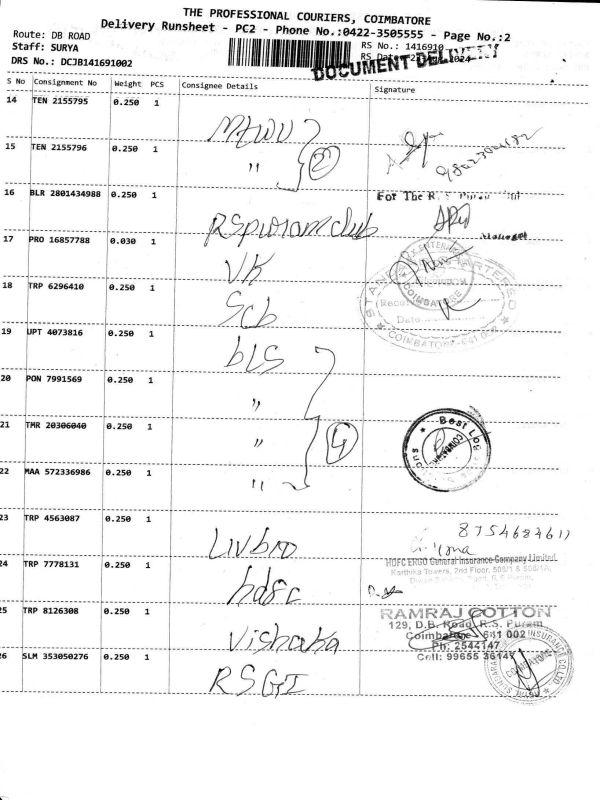 THE PROFESSIONAL COURIERS, COIMBATORE
Delivery Runsheet - PC2 - Phone No.:0422-3505555 - Page No.:2
Route: DB ROAD
Staff: SURYA
DRS No.: DCJB141691002
RS No.: 1416910
DOCUMENT DELIVERY
S No Consignment No Weight PCS Consignee Details Signature
14 TEN 2155795 0.250 1
15 TEN 2155796 0.250 1 " 2
16 BLR 2801434988 0.250 1 RSpuram club For The R. S
17 PRO 16857788 0.030 1 VK
18 TRP 6296410 0.250 1 Scb
COIMBATORE
Date
COIMBATORE-641 0
19 UPT 4073816 0.250 1 bLS
20 PON 7991569 0.250 1 "
21 TMR 20306040 0.250 1 " 4 Best Log
22 MAA 572336986 0.250 1 "
23 TRP 4563087 0.250 1 Livbro 8754684611
24 TRP 7778131 0.250 1 hdfc
HDFC ERGO General Insurance Company Limited.
Karthika Towers, 2nd Floor,
25 TRP 8126308 0.250 1 Vishaka
RAMRAJ COTTON
129, D.B. Road, R.S. Puram
Coimbatore - 641 002
Ph: 2544147
Cell: 99655 36147
26 SLM 353050276 0.250 1 RSGI
COIMBATORE